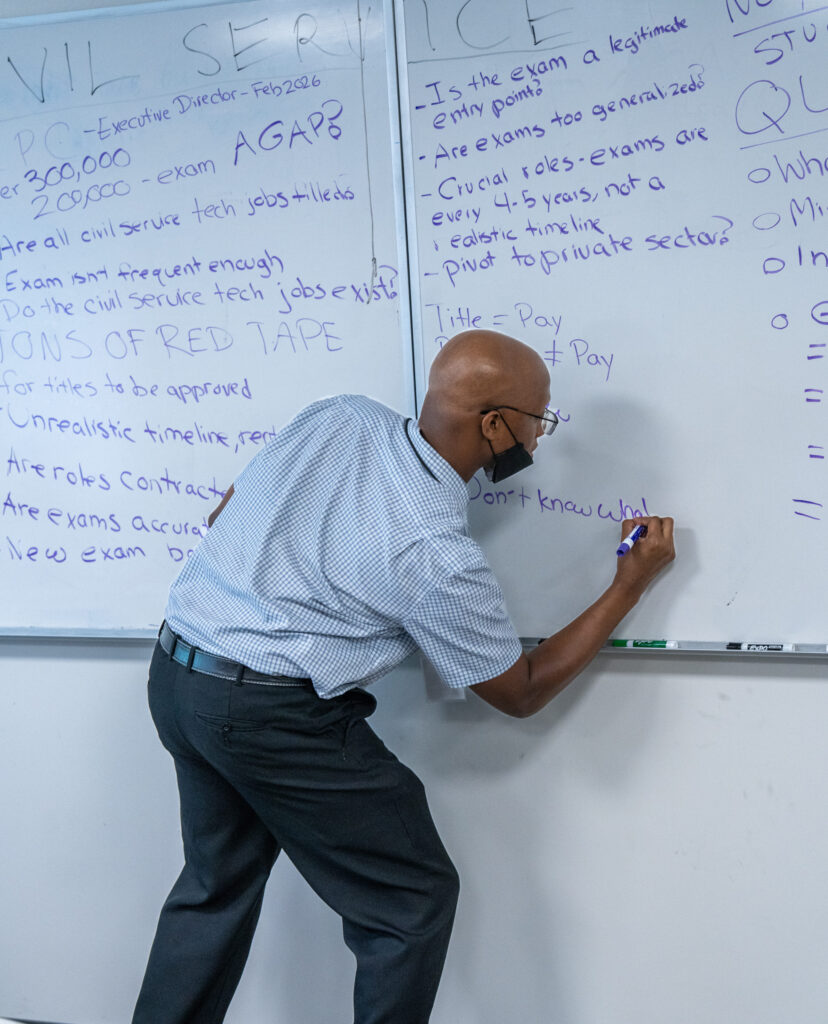 VIL SERVICE
PC - Executive Director - Feb 2026
er 300,000
200,000 - exam AGAP?
Are all civil service tech jobs filled?
Exam isn't frequent enough
Do the civil service tech jobs exist?
TONS OF RED TAPE
for titles to be approved
Unrealistic timeline,
Are roles contract
Are exams accurat
New exam
- Is the exam a legitimate
entry point?
- Are exams too generalized?
- Crucial roles - exams are
every 4-5 years, not a
realistic timeline
- pivot to private sector?
Title = Pay
≠ Pay
Don't know what
STU
QU
Wha
Mi
In